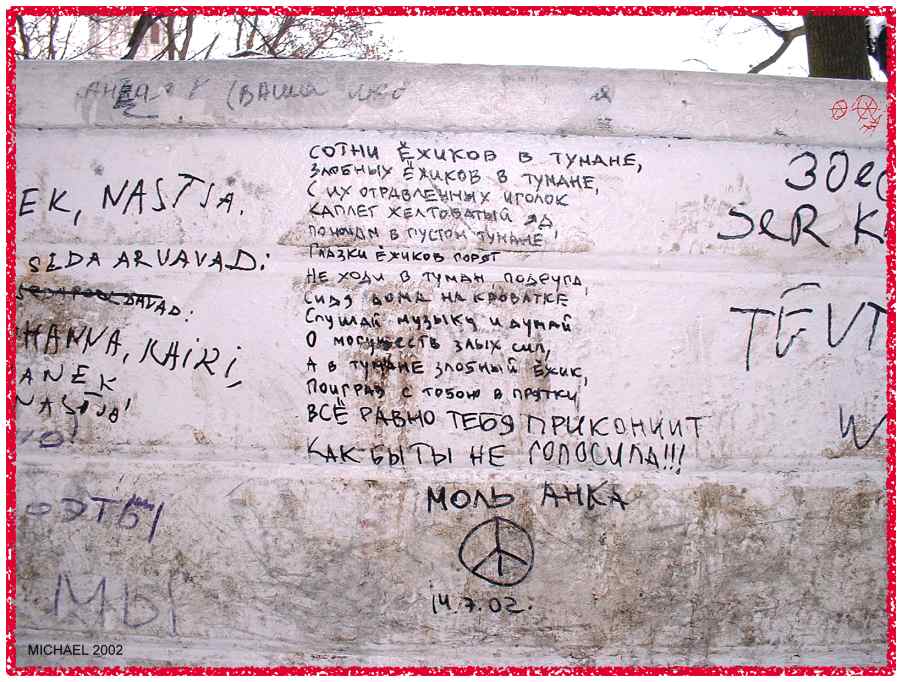 АНКА К (ВАША
Я
EK, NASTJA.
SIIDA ARVAVAD:
DAVAD:
HANNA, KAIRI,
ANEK
NASTJA!
МЫ
СОТНИ ЁЖИКОВ В ТУМАНЕ,
ЗЛОБНЫХ ЁЖИКОВ В ТУМАНЕ,
С ИХ ОТРАВЛЕННЫХ ИГОЛОК
КАПЛЕТ ЖЕЛТОВАТЫЙ ЯД,
ПО НОЧАМ В ГУСТОМ ТУМАНЕ
ГЛАЗКИ ЁЖИКОВ ГОРЯТ
НЕ ХОДИ В ТУМАН ПОДРУГА,
СИДЯ ДОМА НА КРОВАТКЕ
СЛУШАЙ МУЗЫКУ И ДУМАЙ
О МОГУЩЕСТВ ЗЛЫХ СИЛ,
А В ТУМАНЕ ЗЛОБНЫЙ ЁЖИК,
ПОИГРАВ С ТОБОЮ В ПРЯТКИ
ВСЁ РАВНО ТЕБЯ ПРИКОНЧИТ
КАК-БЫ ТЫ НЕ ГОЛОСИЛА!!!
МОЛЬ АНКА
14.7.02.
SER
MICHAEL 2002